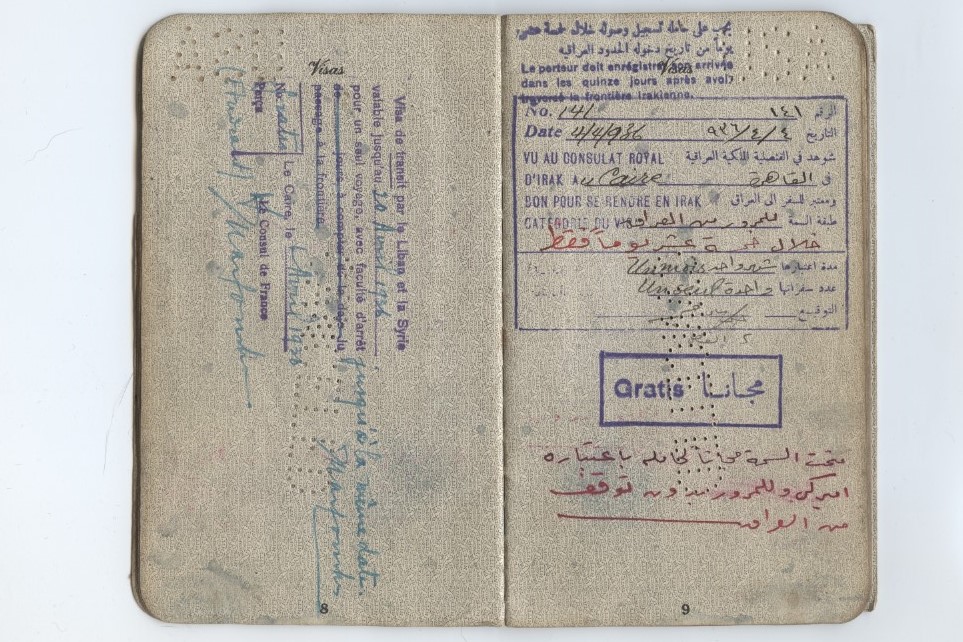 Visas
Visa de transit par le Liban et la Syrie
valable jusqu'au 20 Avril 1936
pour un seul voyage, avec faculté d'arrêt
de jours à compter de la date du
passage à la frontière. jusqu'à la même date.
Le Caire, le Avril 1936
No.
gratis
Perçu
Le Consul de France
8
يجب على حامله تسجيل وصوله خلال خمسة عشر
يوماً من تاريخ دخوله الحدود العراقية
Visas
Le porteur doit enregistrer son arrivée
dans les quinze jours après avoir
traversé la frontière irakienne.
No. 141 ١٤١ الرقم
Date 4/4/936 ٩٣٦/٤/٤ التاريخ
VU AU CONSULAT ROYAL شوهد في القنصلية الملكية العراقية
D'IRAK Au Caire القاهرة في
BON POUR SE RENDRE EN IRAK ومعتبر للسفر الى العراق
CATÉGORIE DU VISA للمرور من العراق طبقة السمة
خلال خمسة عشر يوماً فقط
Un mois شهر واحد مدة اعتبارها
Un seul واحدة عدد سفراتها
التوقيع
Gratis مجاناً
منحت السمة مجاناً لحامله باعتباره
اميركي وللمرور بدون توقف
من العراق
9